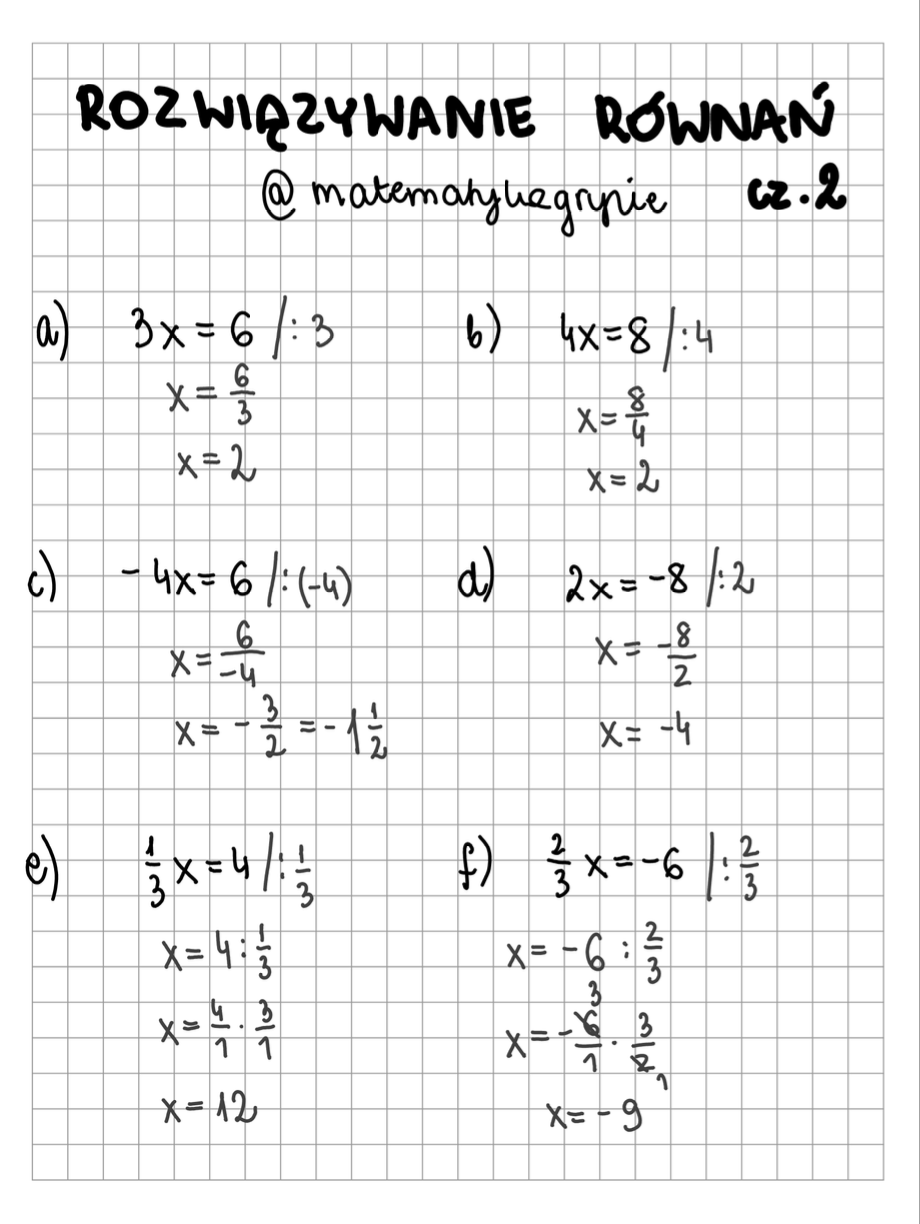 ROZWIĄZYWANIE RÓWNAŃ
@matematykagrypie cz.2
a) 3x = 6 /:3
x = 6/3
x = 2
b) 4x=8 /:4
x = 8/4
x = 2
c) -4x = 6 /:(-4)
x = 6/-4
x = - 3/2 = -1 1/2
d) 2x = -8 /:2
x = -8/2
x = -4
e) 1/3 x = 4 /: 1/3
x = 4 : 1/3
x = 4/1 · 3/1
x = 12
f) 2/3 x = -6 /: 2/3
x = -6 : 2/3
3
x = - 6/1 · 3/2 1
x = -9